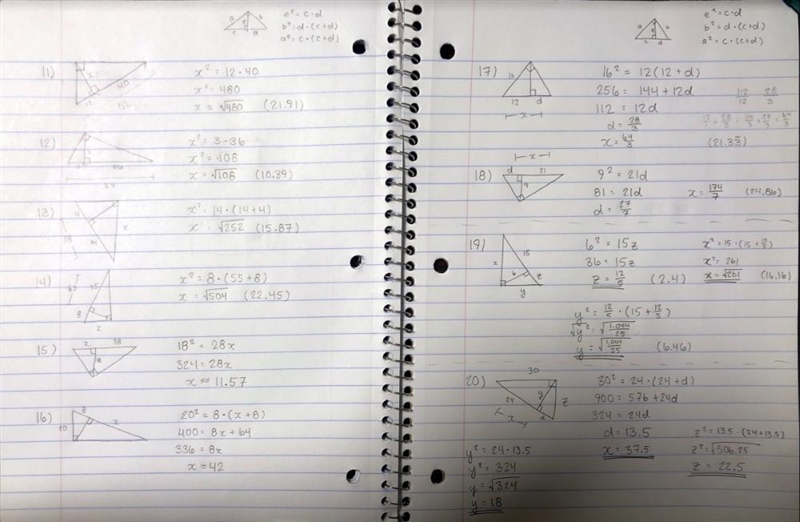 e² = c · d
b² = d · (c+d)
a² = c · (c+d)
a
b
e
c
d
11)
x
40
x² = 12 · 40
x² = 480
x = √480 (21.91)
12)
36
x² = 3 · 36
x² = √108
x = √108 (10.39)
13)
4
18
14
x
x² = 14 · (14+4)
x = √252 (15.87)
14)
63
55
8
x² = 8 · (55+8)
x = √504 (22.45)
15)
x
28
18² = 28x
324 = 28x
x ≈ 11.57
16)
8
20
x
20² = 8 · (x+8)
400 = 8x + 64
336 = 8x
x = 42
e² = c · d
b² = d · (c+d)
a² = c · (c+d)
a
b
e
c
d
17)
16
12
d
x
16² = 12(12+d)
256 = 144 + 12d
112 = 12d
d = 28/3
x = 64/3
112/12
28/3
(21.33)
18)
x
d
21
9
9² = 21d
81 = 21d
d = 27/7
x = 174/7 (24.86)
19)
x
15
6
z
y
6² = 15z
36 = 15z
z = 12/5 (2.4)
x² = 15 · (15 + 12/5)
x² = 261
(16.16)
y² = 12/5 · (15 + 12/5)
√y² = √1,044/25
y = √1,044/25 (6.46)
20)
30
24
y
z
x
d
30² = 24 · (24+d)
900 = 576 + 24d
324 = 24d
d = 13.5
x = 37.5
y² = 24 · 13.5
y² = 324
y = √324
y = 18
z² = 13.5 · (24+13.5)
z² = √506.25
z = 22.5